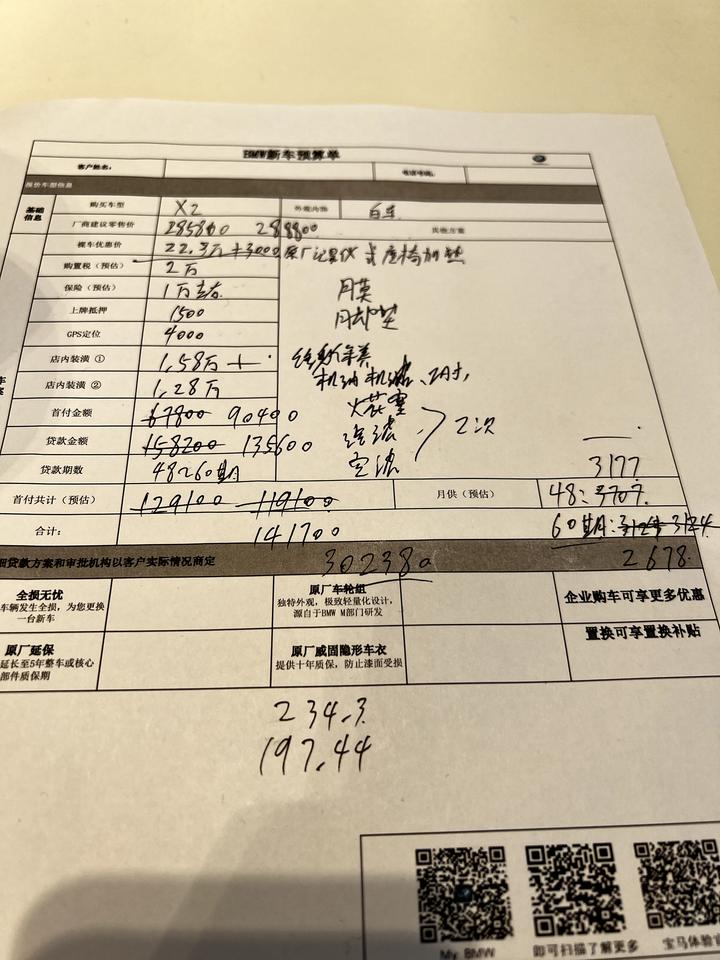 BMW新车预算单
客户姓名:
报价车型信息
基础信息
购买车型 X2 白车
厂商建议零售价 285800 288800
裸车优惠价 22.3万+3000原厂记录仪 座椅加热
购置税（预估） 2万
保险（预估） 1万左右 月膜
上牌抵押 1500
GPS定位 4000
店内装潢 ① 1.58万 +
店内装潢 ② 1.28万 机油 机滤
首付金额 67800 90400 火花塞
贷款金额 158200 135600 2次
贷款期数 48 260期 空滤 3177
首付共计（预估） 129100 119100 月供（预估） 48: 3707.
合计: 141700 60期: 3124 3124
贷款方案和审批机构以客户实际情况商定 302380 2678.
全损无忧
车辆发生全损，为您更换
一台新车
原厂车轮组
独特外观，极致轻量化设计，
源自于BMW M部门研发
企业购车可享更多优惠
置换可享置换补贴
原厂延保
延长至5年整车或核心
部件质保期
原厂威固隐形车衣
提供十年质保，防止漆面受损
234.3
197.44
My BMW
即可扫描了解更多
宝马体验官